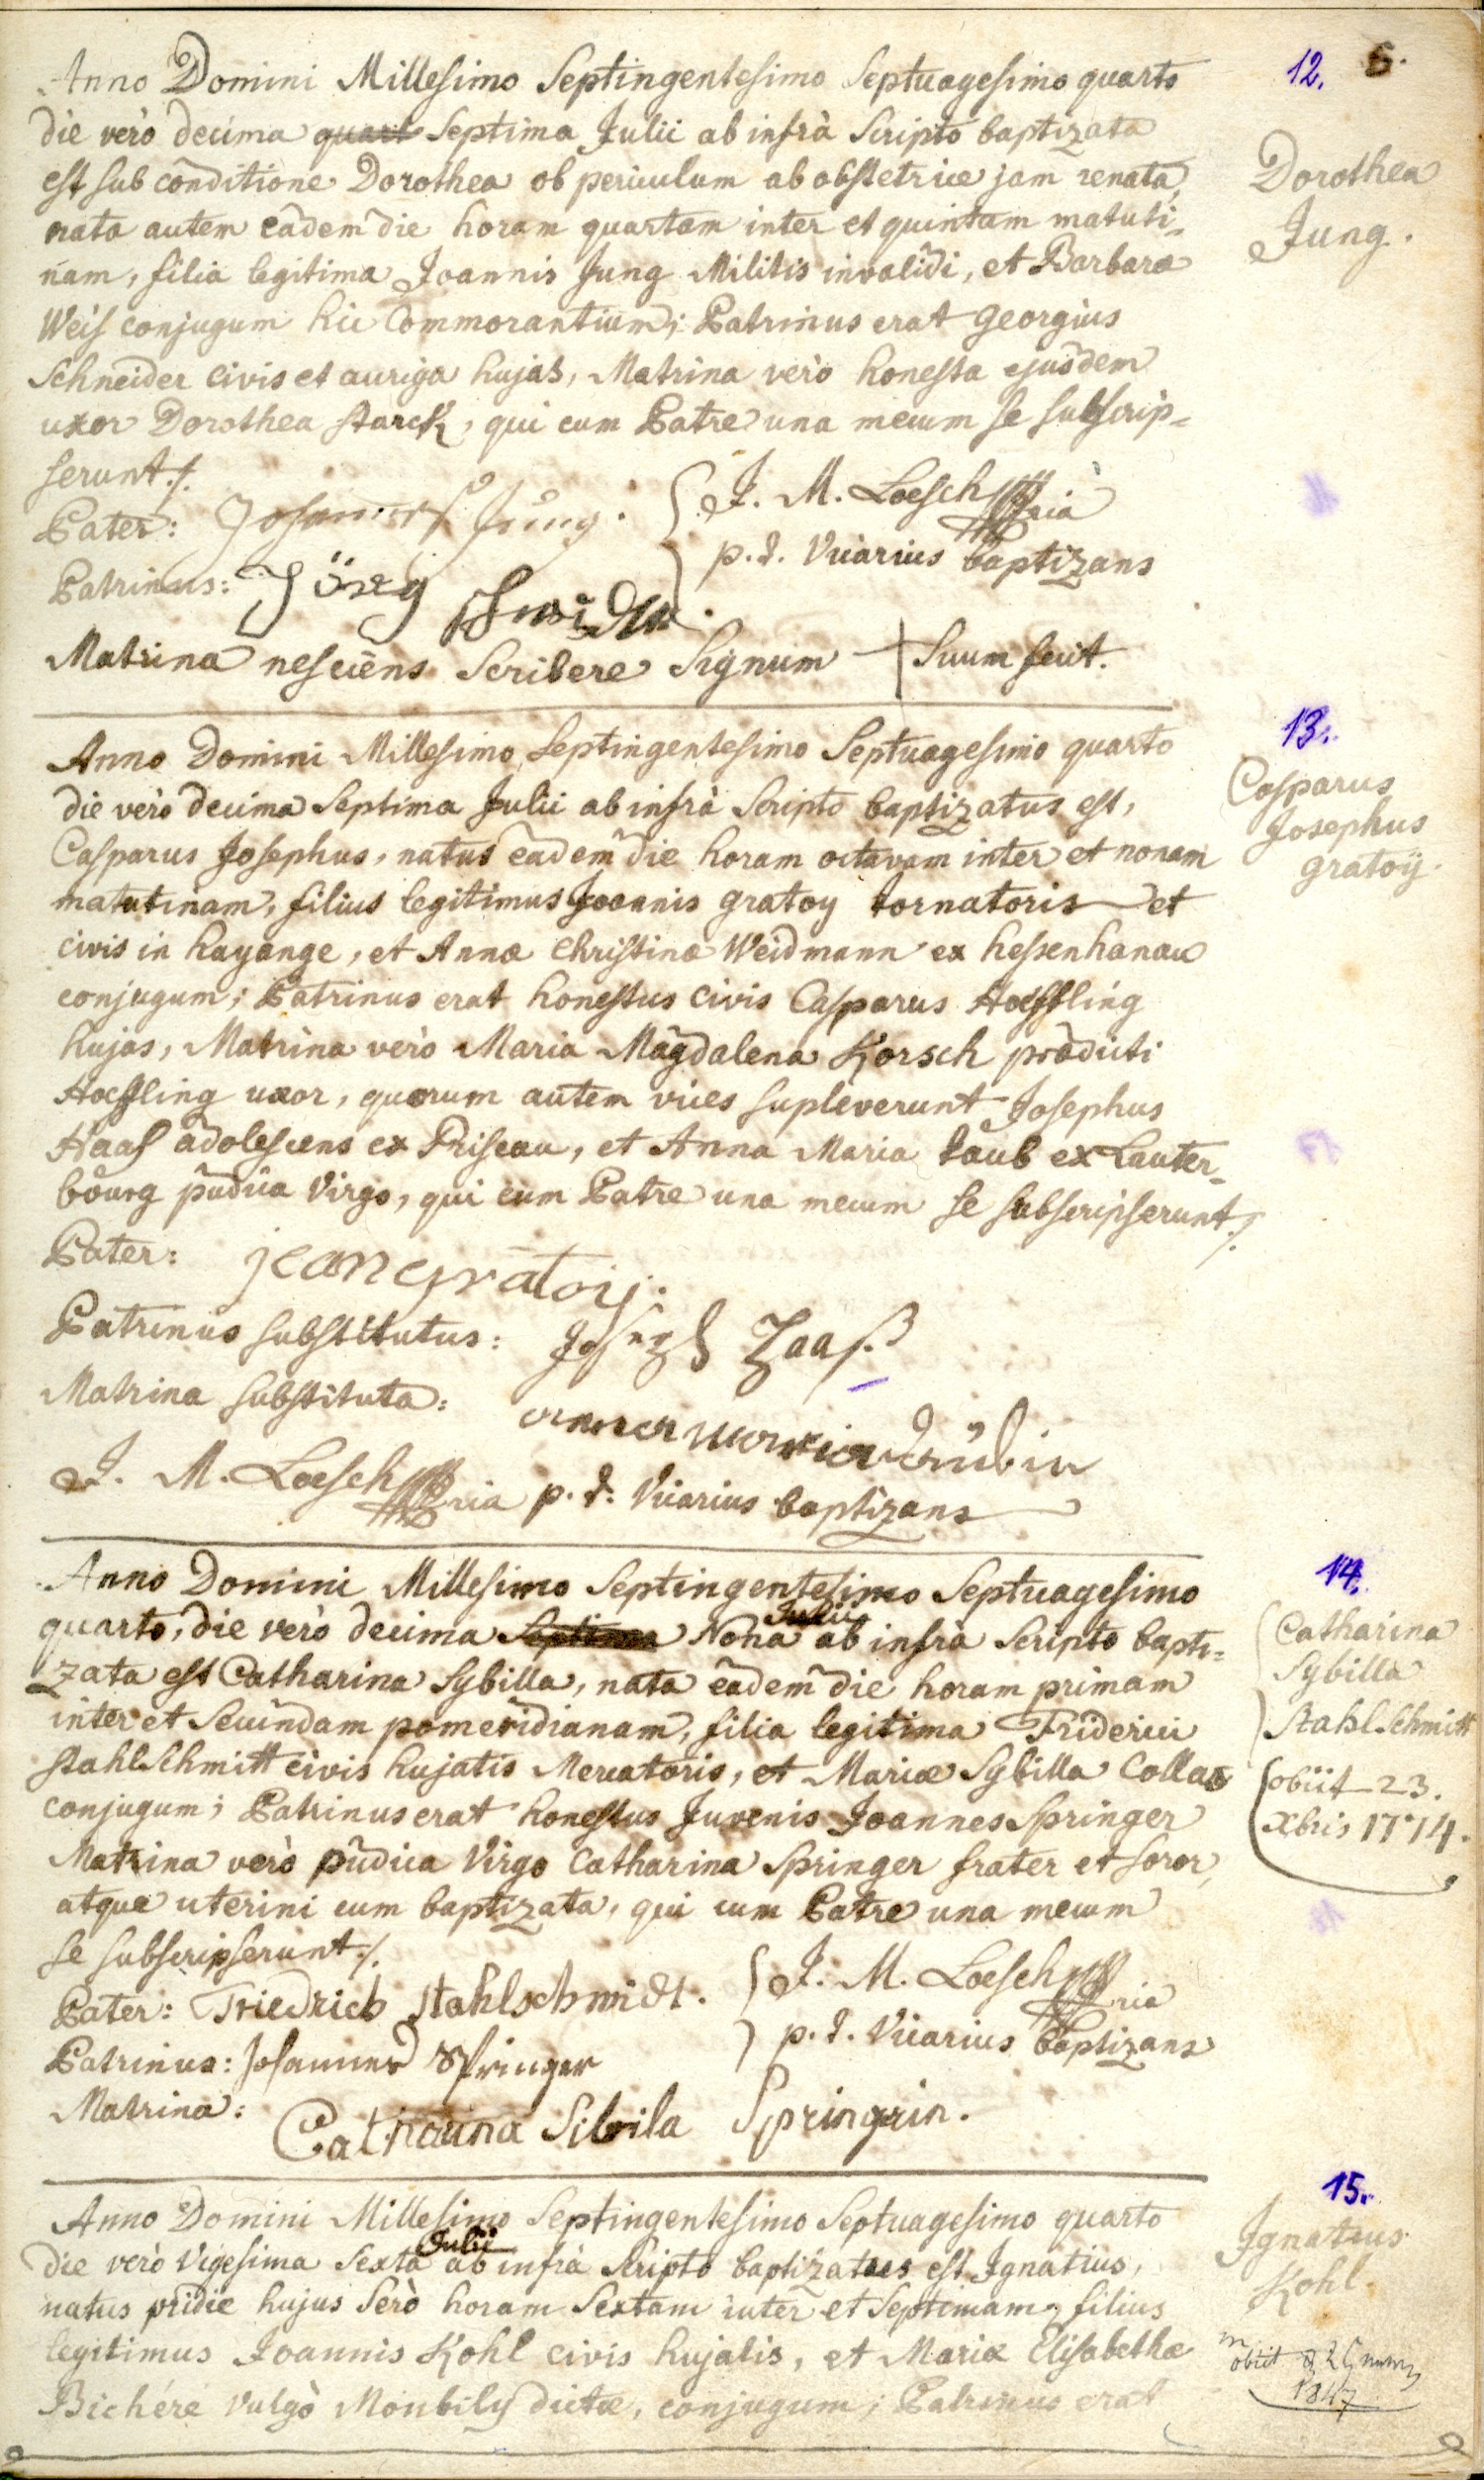 12. 6.
Anno Domini Millesimo Septingentesimo Septuagesimo quarto
die verò decima quart Septima Julii ab infrà Scripto baptizata
est sub conditione Dorothea ob periculum ab obstetrice jam renata,
nata autem eâdem die horam quartam inter et quintam matuti-
nam, filia legitima Joannis Jung Militis invalidi, et Barbaræ
Weis conjugum hic Commorantium; Patrinus erat Georgius
Schneider civis et auriga hujas, Matrina verò honesta ejusdem
uxor Dorothea Starck, qui cum Patre una mecum se subscrip-
serunt ./.
Dorothea
Jung.
Pater: Johannes Jung.
J. M. Loesch
p. t. Vicarius baptizans
Patrinus: Jörg
Matrina nesciens Scribere Signum + Suum fecit.
13.
Anno Domini Millesimo Septingentesimo Septuagesimo quarto
die verò decima Septima Julii ab infrà Scripto baptizatus est,
Casparus Josephus, natus eâdem die horam octavam inter et nonam
matutinam, filius legitimus Joannis gratoy tornatoris et
civis in hayange, et Annæ Christinæ Weidmann ex hessenhanau
conjugum; Patrinus erat honestus civis Casparus Hoeffling
hujas, Matrina verò Maria Magdalena Korsch prædicti
Hoeffling uxor, quorum autem vices supleverunt Josephus
Haas adolescens ex Priseau, et Anna Maria taub ex Lauter-
bourg pudica Virgo, qui cum Patre una mecum se subscripserunt ./.
Casparus
Josephus
gratoÿ.
Pater: jean gratoij.
Patrinus substitutus: Joseph Haaß
Matrina substituta: anna maria
J. M. Loesch p. t. Vicarius baptizans
14.
Anno Domini Millesimo Septingentesimo Septuagesimo
quarto, die verò decima Septima Nona Julii ab infrà Scripto bapti-
zata est Catharina Sybilla, nata eâdem die horam primam
inter et Secundam pomeridianam, filia legitima Friderici
Stahlschmitt civis hujatis Mercatoris, et Mariæ Sybilla Collas
conjugum; Patrinus erat honestus Juvenis Joannes Springer
Matrina verò pudica Virgo Catharina Springer frater et soror,
atque uterini cum baptizata, qui cum Patre una mecum
se subscripserunt ./.
Catharina
Sybilla
Stahlschmitt
obiit 23.
Xbris 1774.
Pater: Friedrich Stahlschmidt.
J. M. Loesch
p. t. Vicarius baptizans
Patrinus: Johannes Springer
Matrina: Catharina Sibila Springerin.
15.
Anno Domini Millesimo Septingentesimo Septuagesimo quarto
die verò Vigesima Sexta Julii ab infrà Scripto baptizatus est Ignatius,
natus pridie hujus Serò horam Sextam inter et Septimam, filius
legitimus Joannis Kohl civis hujatis, et Mariæ Elisabethæ
Bichéré Vulgò Monbily dictæ, conjugum; Patrinus erat
Ignatius
Kohl.
obiit
1847